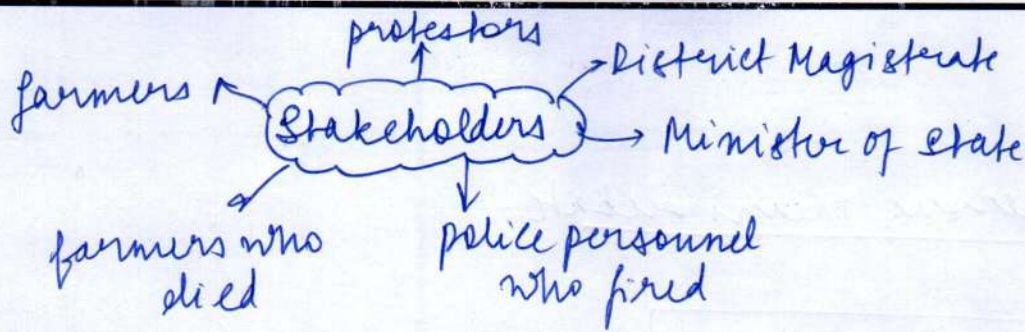 protestors
District Magistrate
farmers
Stakeholders
Minister of State
farmers who
died
police personnel
who fired